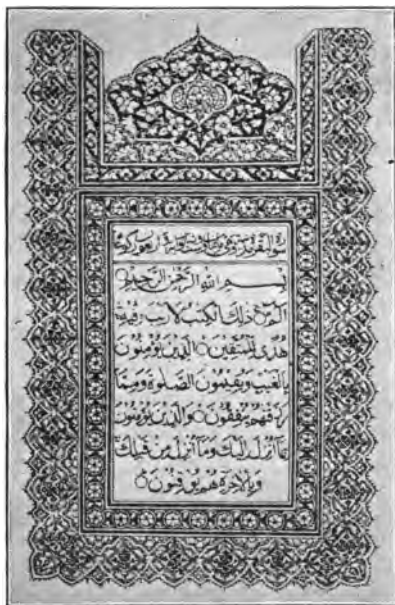 سورة البقرة
بِسْمِ اللهِ الرَّحْمٰنِ الرَّحِيْمِ
الٓمّٓ ذٰلِكَ الْكِتٰبُ لَا رَيْبَ فِيْهِ
هُدًى لِّلْمُتَّقِيْنَ ۝ الَّذِيْنَ يُؤْمِنُوْنَ
بِالْغَيْبِ وَيُقِيْمُوْنَ الصَّلٰوةَ وَمِمَّا
رَزَقْنٰهُمْ يُنْفِقُوْنَ ۝ وَالَّذِيْنَ يُؤْمِنُوْنَ
بِمَآ اُنْزِلَ اِلَيْكَ وَمَآ اُنْزِلَ مِنْ قَبْلِكَ
وَبِالْاٰخِرَةِ هُمْ يُوْقِنُوْنَ ۝